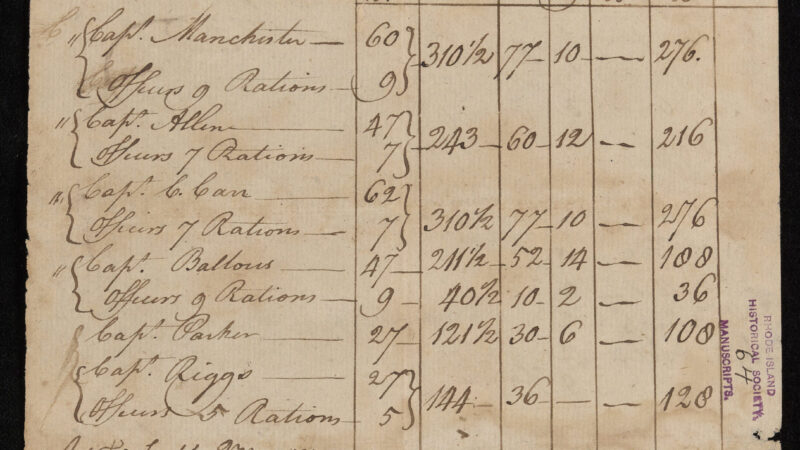 " Capt. Manchester — 60 310 1/2 77 - 10 — 276.
Officers 9 Rations — 9
" Capt. Allen — 47 243 — 60 - 12 — 216
Officers 7 Rations — 7
" Capt. C. Carr — 62 310 1/2 - 77 - 10 — 276
Officers 7 Rations — 7
" Capt. Ballous — 47 — 211 1/2 - 52 - 14 — 188
Officers 9 Rations — 9 - 40 1/2 10 - 2 — 36
Capt. Parker — 27 - 121 1/2 - 30 - 6 — 108
Capt. Riggs — 27 144 — 36 — — 128
Officers 5 Rations — 5
RHODE ISLAND
HISTORICAL SOCIETY.
64
MANUSCRIPTS.